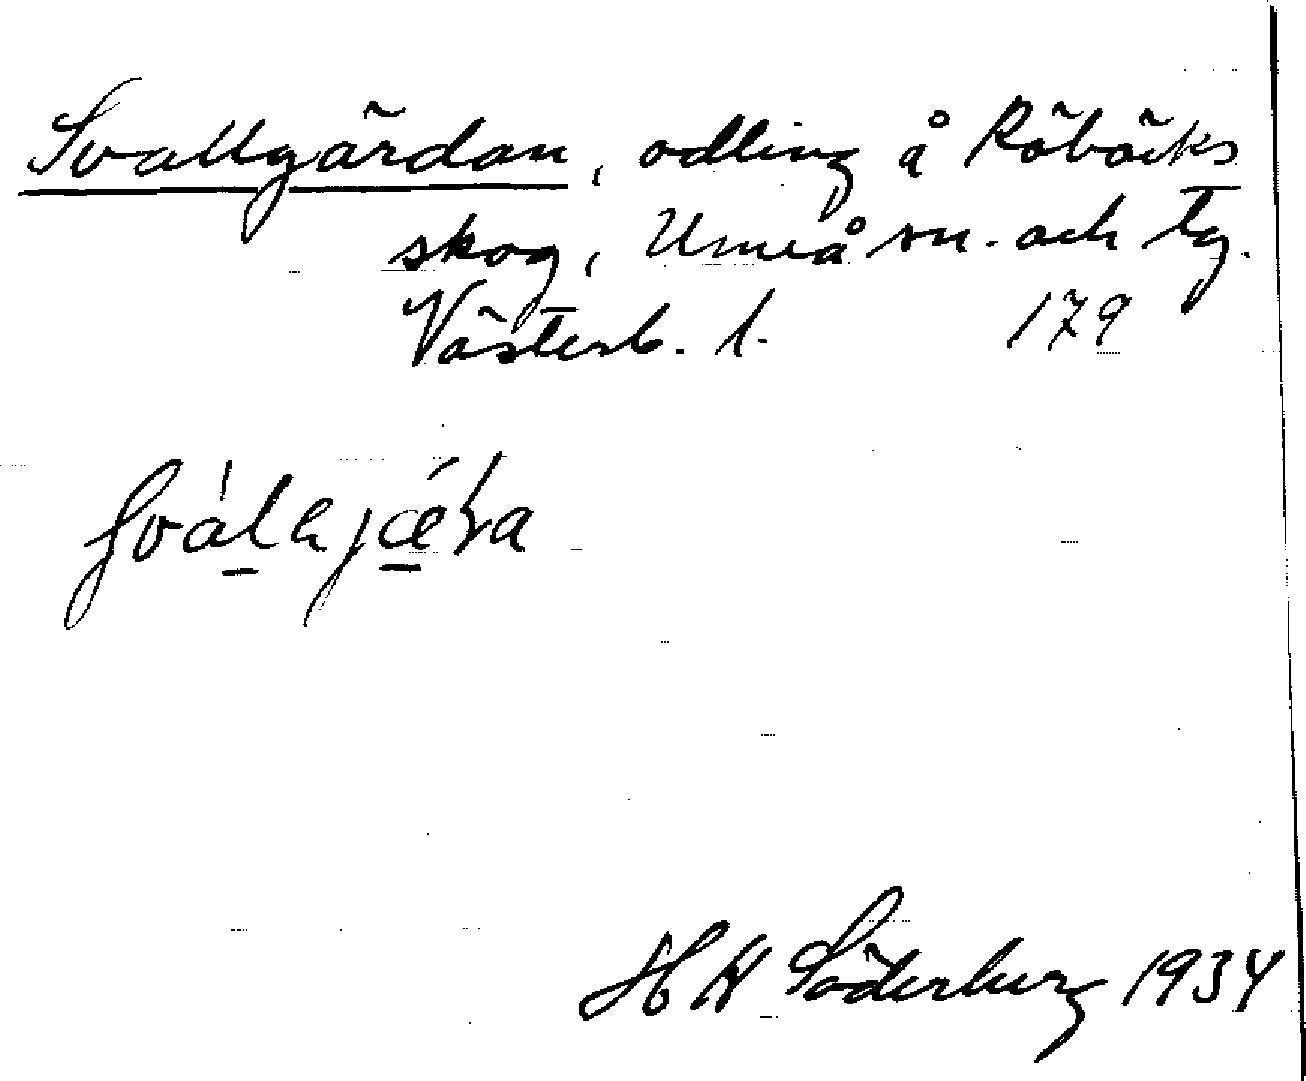 Svallgärdan, odling å Röbäcks
skog, Umeå sn. och tg.
Västerb. l. 179
H W Söderberg 1934